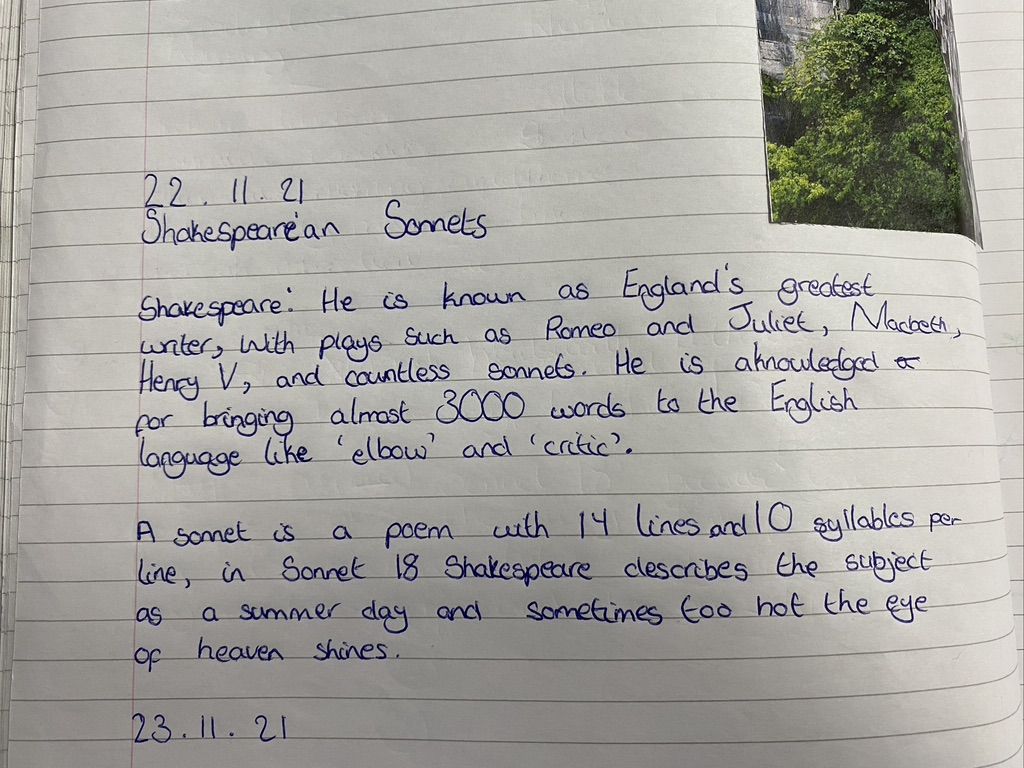 22.11.21
Shakespeare'an Sonnets
Shakespeare: He is known as England's greatest
writer, with plays such as Romeo and Juliet, Macbeth,
Henry V, and countless sonnets. He is aknowledged a
for bringing almost 3000 words to the English
language like 'elbow' and 'critic'.
A sonnet is a poem with 14 lines and 10 syllables per
line, in Sonnet 18 Shakespeare describes the subject
as a summer day and sometimes too hot the eye
of heaven shines.
23.11.21